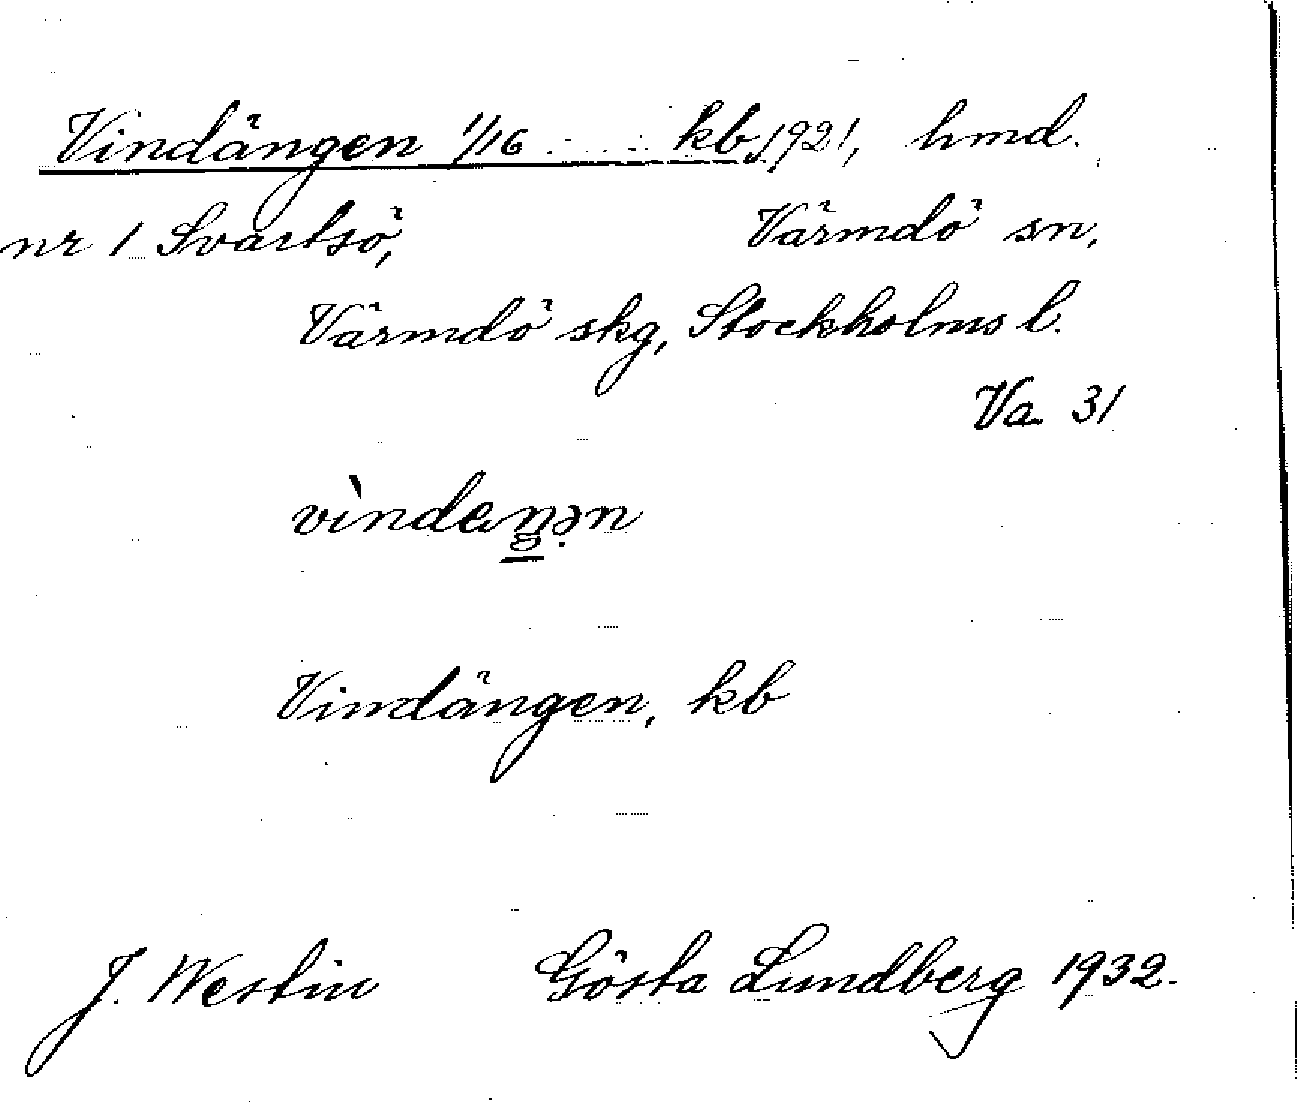 Vindängen 1/16 kb, 1921, hmd.
nr 1 Svartsö, Värmdö sn,
Värmdö skg, Stockholms l.
Va. 31
vìndaŋən
Vindängen, kb
J. Westin Gösta Lundberg 1932.